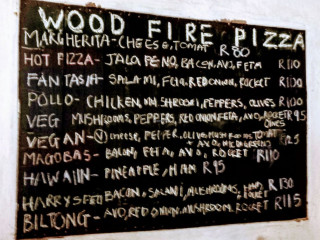 WOOD FIRE PIZZA
MARGHERITA - CHEESE, TOMAT R80
HOT PIZZA - JALAPENO, BACON, AVO, FETA R110
FANTASIA - SALAMI, FETA, REDONION, ROCKET R100
POLLO - CHICKEN, MUSHROOM, PEPPERS, OLIVES R100
VEG MUSHROOMS, PEPPERS, RED ONION, FETA, AVO, ROCKET R95
OLIVES
VEGAN - CHEESE, PEPPER, OLIVES, MUSHROOMS, TOMATO
+ AVO, MICROGREENS
MAGOBAS - BACON, FETA, AVO, ROCKET R110
HAWAIIN - PINEAPPLE, HAM R95
HARRYSFED BACON, SALAMI, MUSHROOMS, R130
BILTONG - AVO, RED ONION, MUSHROOM, ROCKET R115